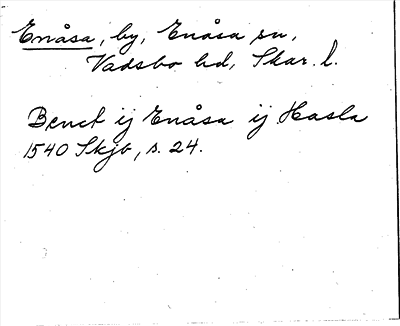 Enåsa, by, Enåsa sn,
Vadsbo hd, Skar. l.
Benct ij Enåsa ij Hasla
1540 Skjb, s. 24.